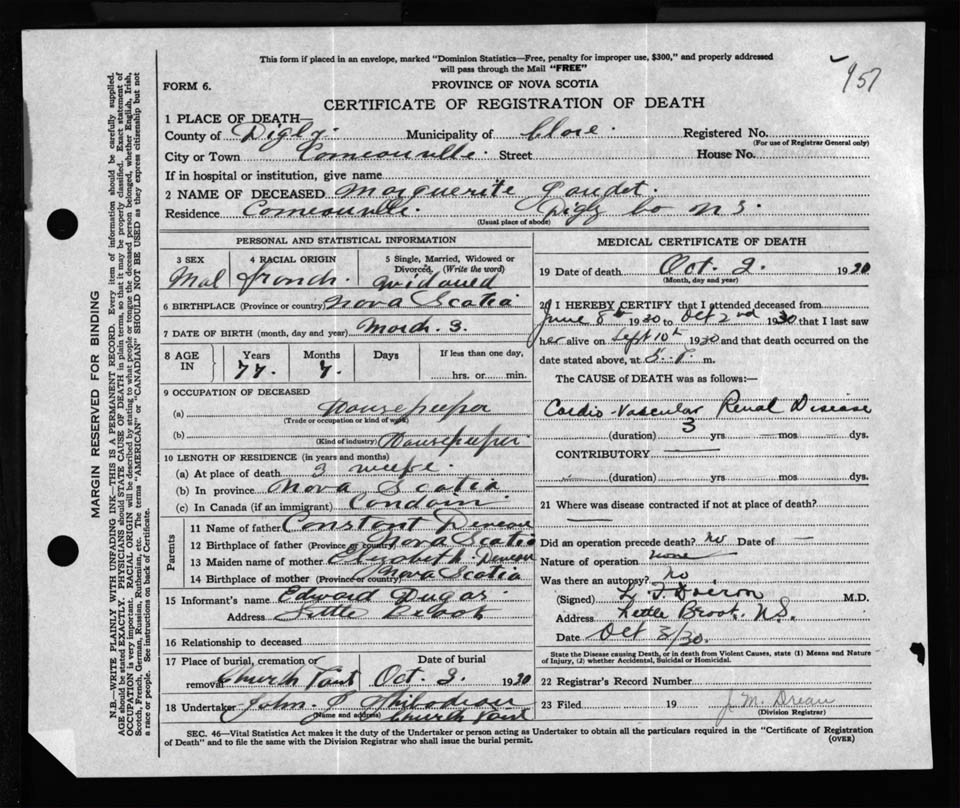 This form if placed in an envelope, marked "Dominion Statistics—Free, penalty for improper use, $300," and properly addressed
will pass through the Mail "FREE"
957
FORM 6.
PROVINCE OF NOVA SCOTIA
CERTIFICATE OF REGISTRATION OF DEATH
1 PLACE OF DEATH—
County of Digby. Municipality of Clare. Registered No.
(For use of Registrar General only)
City or Town Comeauville. Street House No.
If in hospital or institution, give name
2 NAME OF DECEASED Marguerite Gaudet.
Residence Comeauville. Digby Co N S.
(Usual place of abode)
PERSONAL AND STATISTICAL INFORMATION
3 SEX 4 RACIAL ORIGIN 5 Single, Married, Widowed or
Divorced, (Write the word)
Mal french. widowed
6 BIRTHPLACE (Province or country) Nova Scotia
7 DATE OF BIRTH (month, day and year) March. 3.
8 AGE IN Years Months Days If less than one day,
77. 7. hrs. or min.
9 OCCUPATION OF DECEASED
(a) Housekeeper
(Trade or occupation or kind of work)
(b) Housekeeper
(Kind of industry)
10 LENGTH OF RESIDENCE (in years and months)
(a) At place of death 3 weeks.
(b) In province Nova Scotia
(c) In Canada (if an immigrant)
Parents
11 Name of father Constant
12 Birthplace of father (Province or country) Nova Scotia
13 Maiden name of mother Elizabeth
14 Birthplace of mother (Province or country) Nova Scotia
15 Informant's name Edward Dugas
Address Little Brook
16 Relationship to deceased
17 Place of burial, cremation or Date of burial
removal Church Point Oct. 3. 1930
18 Undertaker John
(Name and address) Church Point
MEDICAL CERTIFICATE OF DEATH
19 Date of death Oct. 2. 1930
(Month, day and year)
20 I HEREBY CERTIFY that I attended deceased from
June 8th 1930 to Oct 2nd 1930 that I last saw
her alive on Sept 10th 1930 and that death occurred on the
date stated above, at P. m.
The CAUSE of DEATH was as follows:—
Cardio-Vascular Renal Disease
(duration) 3 yrs — mos — dys.
CONTRIBUTORY —
(duration) yrs. mos. dys.
21 Where was disease contracted if not at place of death?
—
Did an operation precede death? No Date of —
Nature of operation none
Was there an autopsy? no
(Signed) Doiron M.D.
Address Little Brook, N.S.
Date Oct 3/30.
State the Disease causing Death, or in death from Violent Causes, state (1) Means and Nature
of Injury, (2) whether Accidental, Suicidal or Homicidal.
22 Registrar's Record Number
23 Filed 19 J M
(Division Registrar)
SEC. 46—Vital Statistics Act makes it the duty of the Undertaker or person acting as Undertaker to obtain all the particulars required in the "Certificate of Registration
of Death" and to file the same with the Division Registrar who shall issue the burial permit.
(OVER)
MARGIN RESERVED FOR BINDING
N.B.—WRITE PLAINLY WITH UNFADING INK—THIS IS A PERMANENT RECORD. Every item of information should be carefully supplied.
AGE should be stated EXACTLY. PHYSICIANS should STATE CAUSE OF DEATH in plain terms, so that it may be properly classified. Exact statement of
OCCUPATION is very important. RACIAL ORIGIN will be described by stating to what people or tongue the deceased person belonged, whether English, Irish,
Scotch, French, German, Russian, Ruthenian, etc. The terms "AMERICAN" or "CANADIAN" SHOULD NOT BE USED as they express citizenship but not
a race or people. See instructions on back of Certificate.